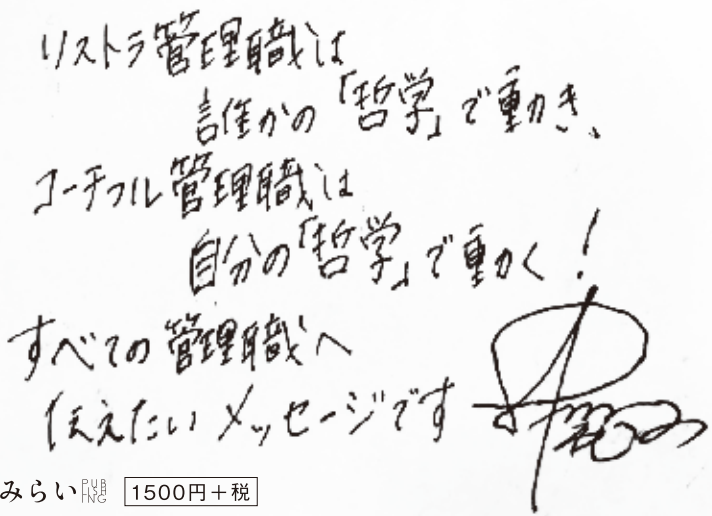 リストラ管理職は
誰かの「哲学」で動き、
コーチフル管理職は
自分の「哲学」で動く!
すべての管理職へ
伝えたいメッセージです
みらい PUBLISHING
1500円+税